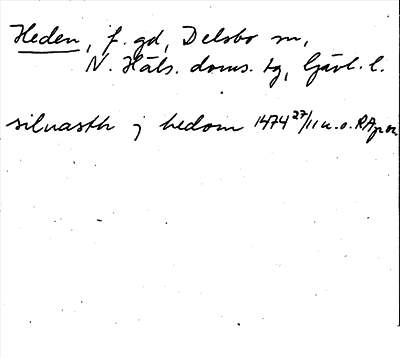 Heden, f. gd, Delsbo sn,
N. Häls. doms. tg, Gävl. l.
siluasth j hedom 1474 27/11 u.o. RAp or